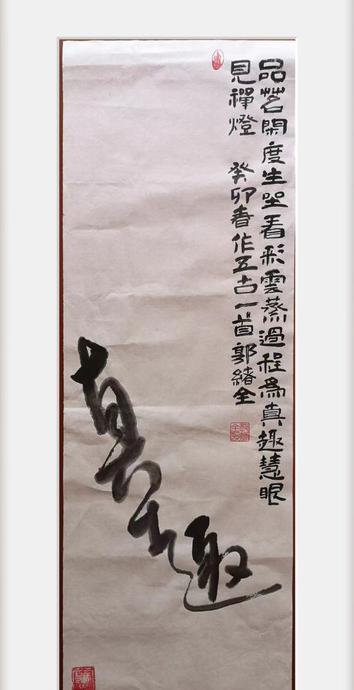 品茗閑度生坐看彩雲蒸過程為真趣慧眼
見禪燈 癸卯春作五古一首郭緒全
真趣